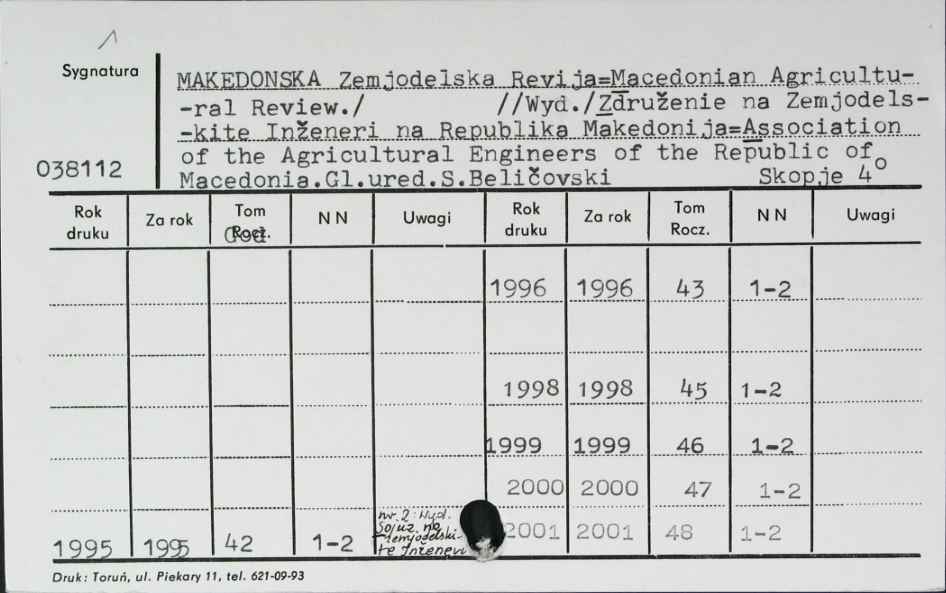 Sygnatura
MAKEDONSKA Zemjodelska Revija=Macedonian Agricultu-
-ral Review./ //Wyd./Združenie na Zemjodels-
-kite Inženeri na Republika Makedonija=Association
of the Agricultural Engineers of the Republic of
038112
Macedonia.Gl.ured.S.Beličovski Skopje 4°
Rok druku Za rok Tom Rocz. God. N N Uwagi Rok druku Za rok Tom Rocz. N N Uwagi
1996 1996 43 1-2
1998 1998 45 1-2
1999 1999 46 1-2
2000 2000 47 1-2
nr. 2: Wyd.
Sojuz. na
Zemjodelski-
te Inženeri
2001 2001 48 1-2
1995 1995 42 1-2
Druk: Toruń, ul. Piekary 11, tel. 621-09-93